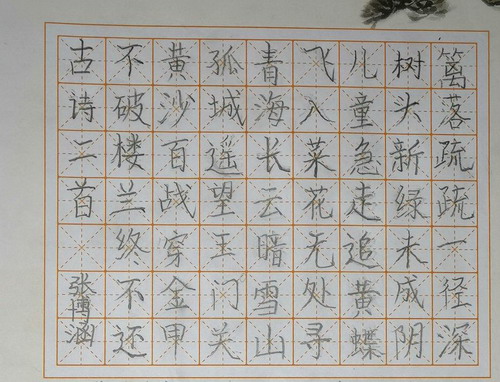 篱落疏疏一径深
树头新绿未成阴
儿童急走追黄蝶
飞入菜花无处寻
青海长云暗雪山
孤城遥望玉门关
黄沙百战穿金甲
不破楼兰终不还
古诗二首
张博涵